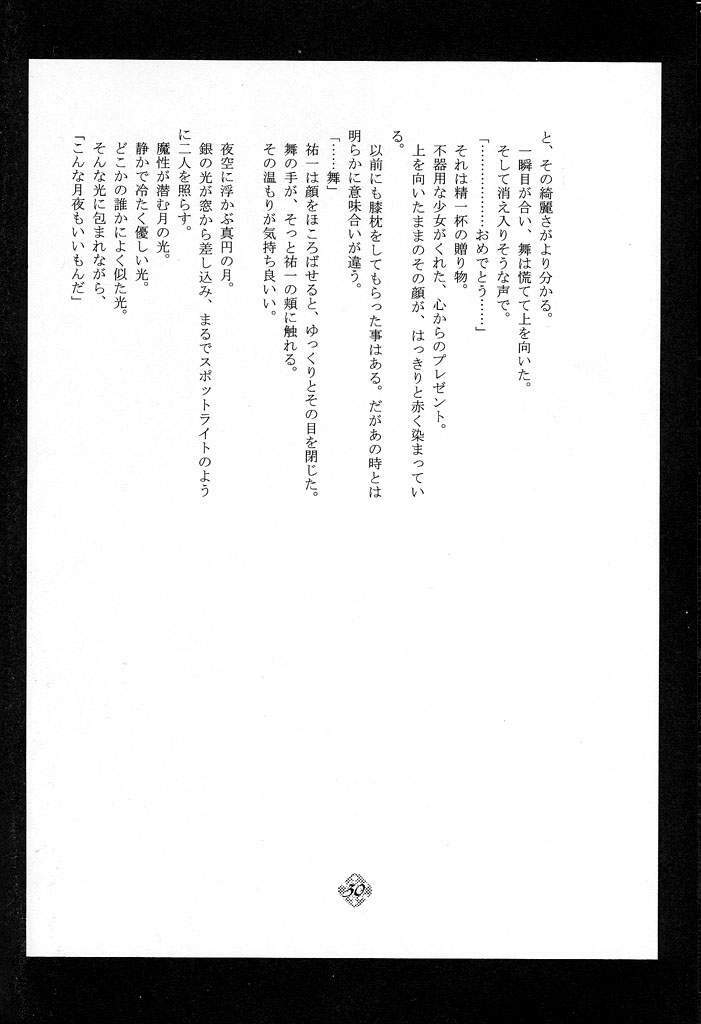 と、その綺麗さがより分かる。
一瞬目が合い、舞は慌てて上を向いた。
そして消え入りそうな声で。
「………………おめでとう……」
それは精一杯の贈り物。
不器用な少女がくれた、心からのプレゼント。
上を向いたままのその顔が、はっきりと赤く染まってい
る。
以前にも膝枕をしてもらった事はある。だがあの時とは
明らかに意味合いが違う。
「……舞」
祐一は顔をほころばせると、ゆっくりとその目を閉じた。
舞の手が、そっと祐一の頬に触れる。
その温もりが気持ち良いい。
夜空に浮かぶ真円の月。
銀の光が窓から差し込み、まるでスポットライトのよう
に二人を照らす。
魔性が潜む月の光。
静かで冷たく優しい光。
どこかの誰かによく似た光。
そんな光に包まれながら、
「こんな月夜もいいもんだ」
30